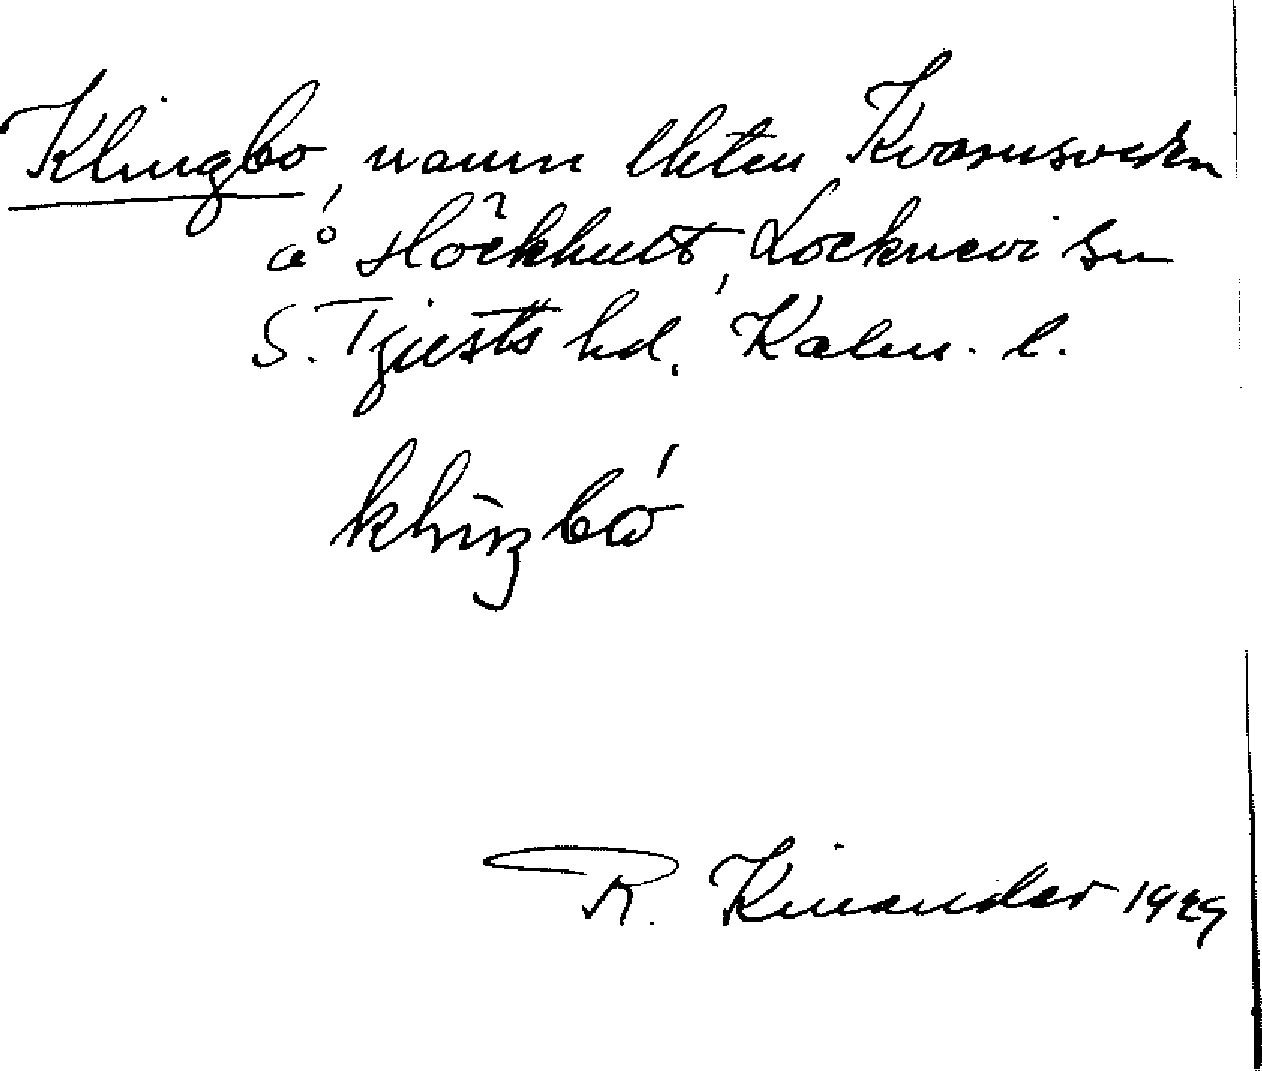 Klingbo, namn lht en Kvarnsveden
å Höckhult, Locknevi sn
S. Tjusts hd. Kalm. l.
klıŋbó
R. Kinander 1929